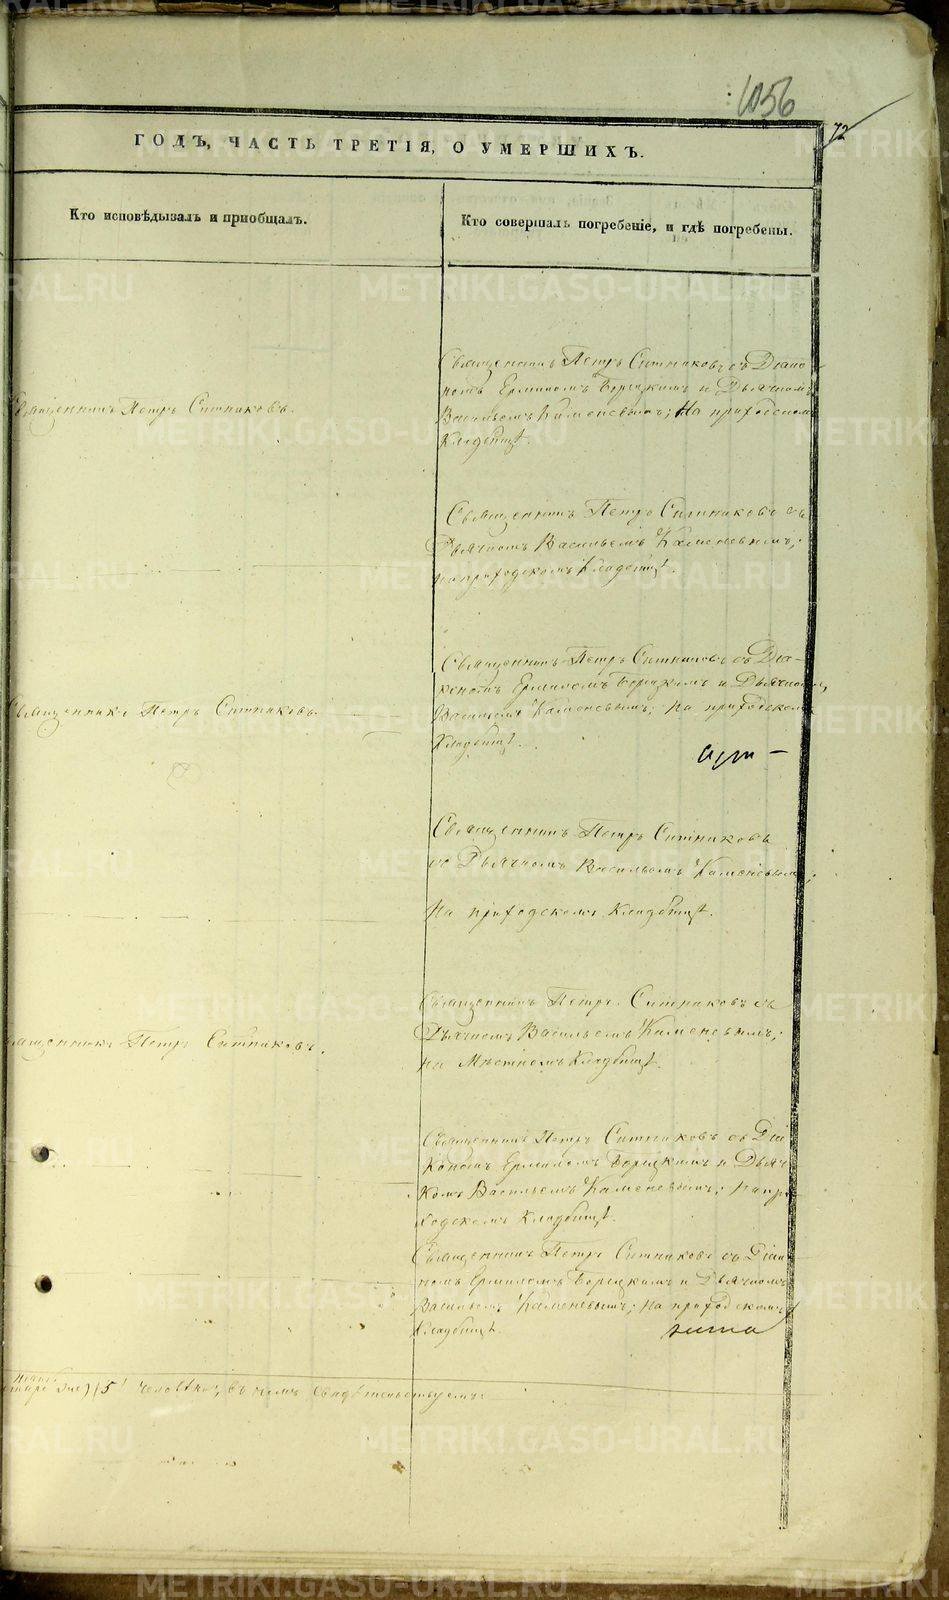 1056
72
ГОДЪ, ЧАСТЬ ТРЕТІЯ, О УМЕРШИХЪ.
Кто исповѣдывалъ и пріобщалъ.
Кто совершалъ погребеніе, и гдѣ погребены.
Священникъ Петръ Ситниковъ.
Священникъ Петръ Ситниковъ съ Діако
номъ Ермиломъ Борецкимъ и Дьячкомъ
Васильемъ Каменевымъ; На приходскомъ
Кладбищѣ.
Священникъ Петръ Ситниковъ съ
Дьячкомъ Васильемъ Каменевымъ;
на приходскомъ Кладбищѣ.
Священникъ Петръ Ситниковъ.
Священникъ Петръ Ситниковъ съ Діа-
кономъ Ермиломъ Борецкимъ и Дьячкомъ
Васильемъ Каменевымъ; На приходскомъ
Кладбищѣ.
Священникъ Петръ Ситниковъ
съ Дьячкомъ Васильемъ Каменевымъ;
На приходскомъ Кладбищѣ.
Священникъ Петръ Ситниковъ.
Священникъ Петръ Ситниковъ съ
Дьячкомъ Васильемъ Каменевымъ;
на Мѣстномъ Кладбищѣ.
Священникъ Петръ Ситниковъ съ Діа
кономъ Ермиломъ Борецкимъ и Дьяч-
комъ Васильемъ Каменевымъ; На при
ходскомъ Кладбищѣ.
Священникъ Петръ Ситниковъ съ Діако
номъ Ермиломъ Борецкимъ и Дьячкомъ
Васильемъ Каменевымъ; На приходскомъ
Кладбищѣ.
15 человѣкъ, въ чемъ свидѣтельствуемъ:
METRIKI.GASO-URAL.RU